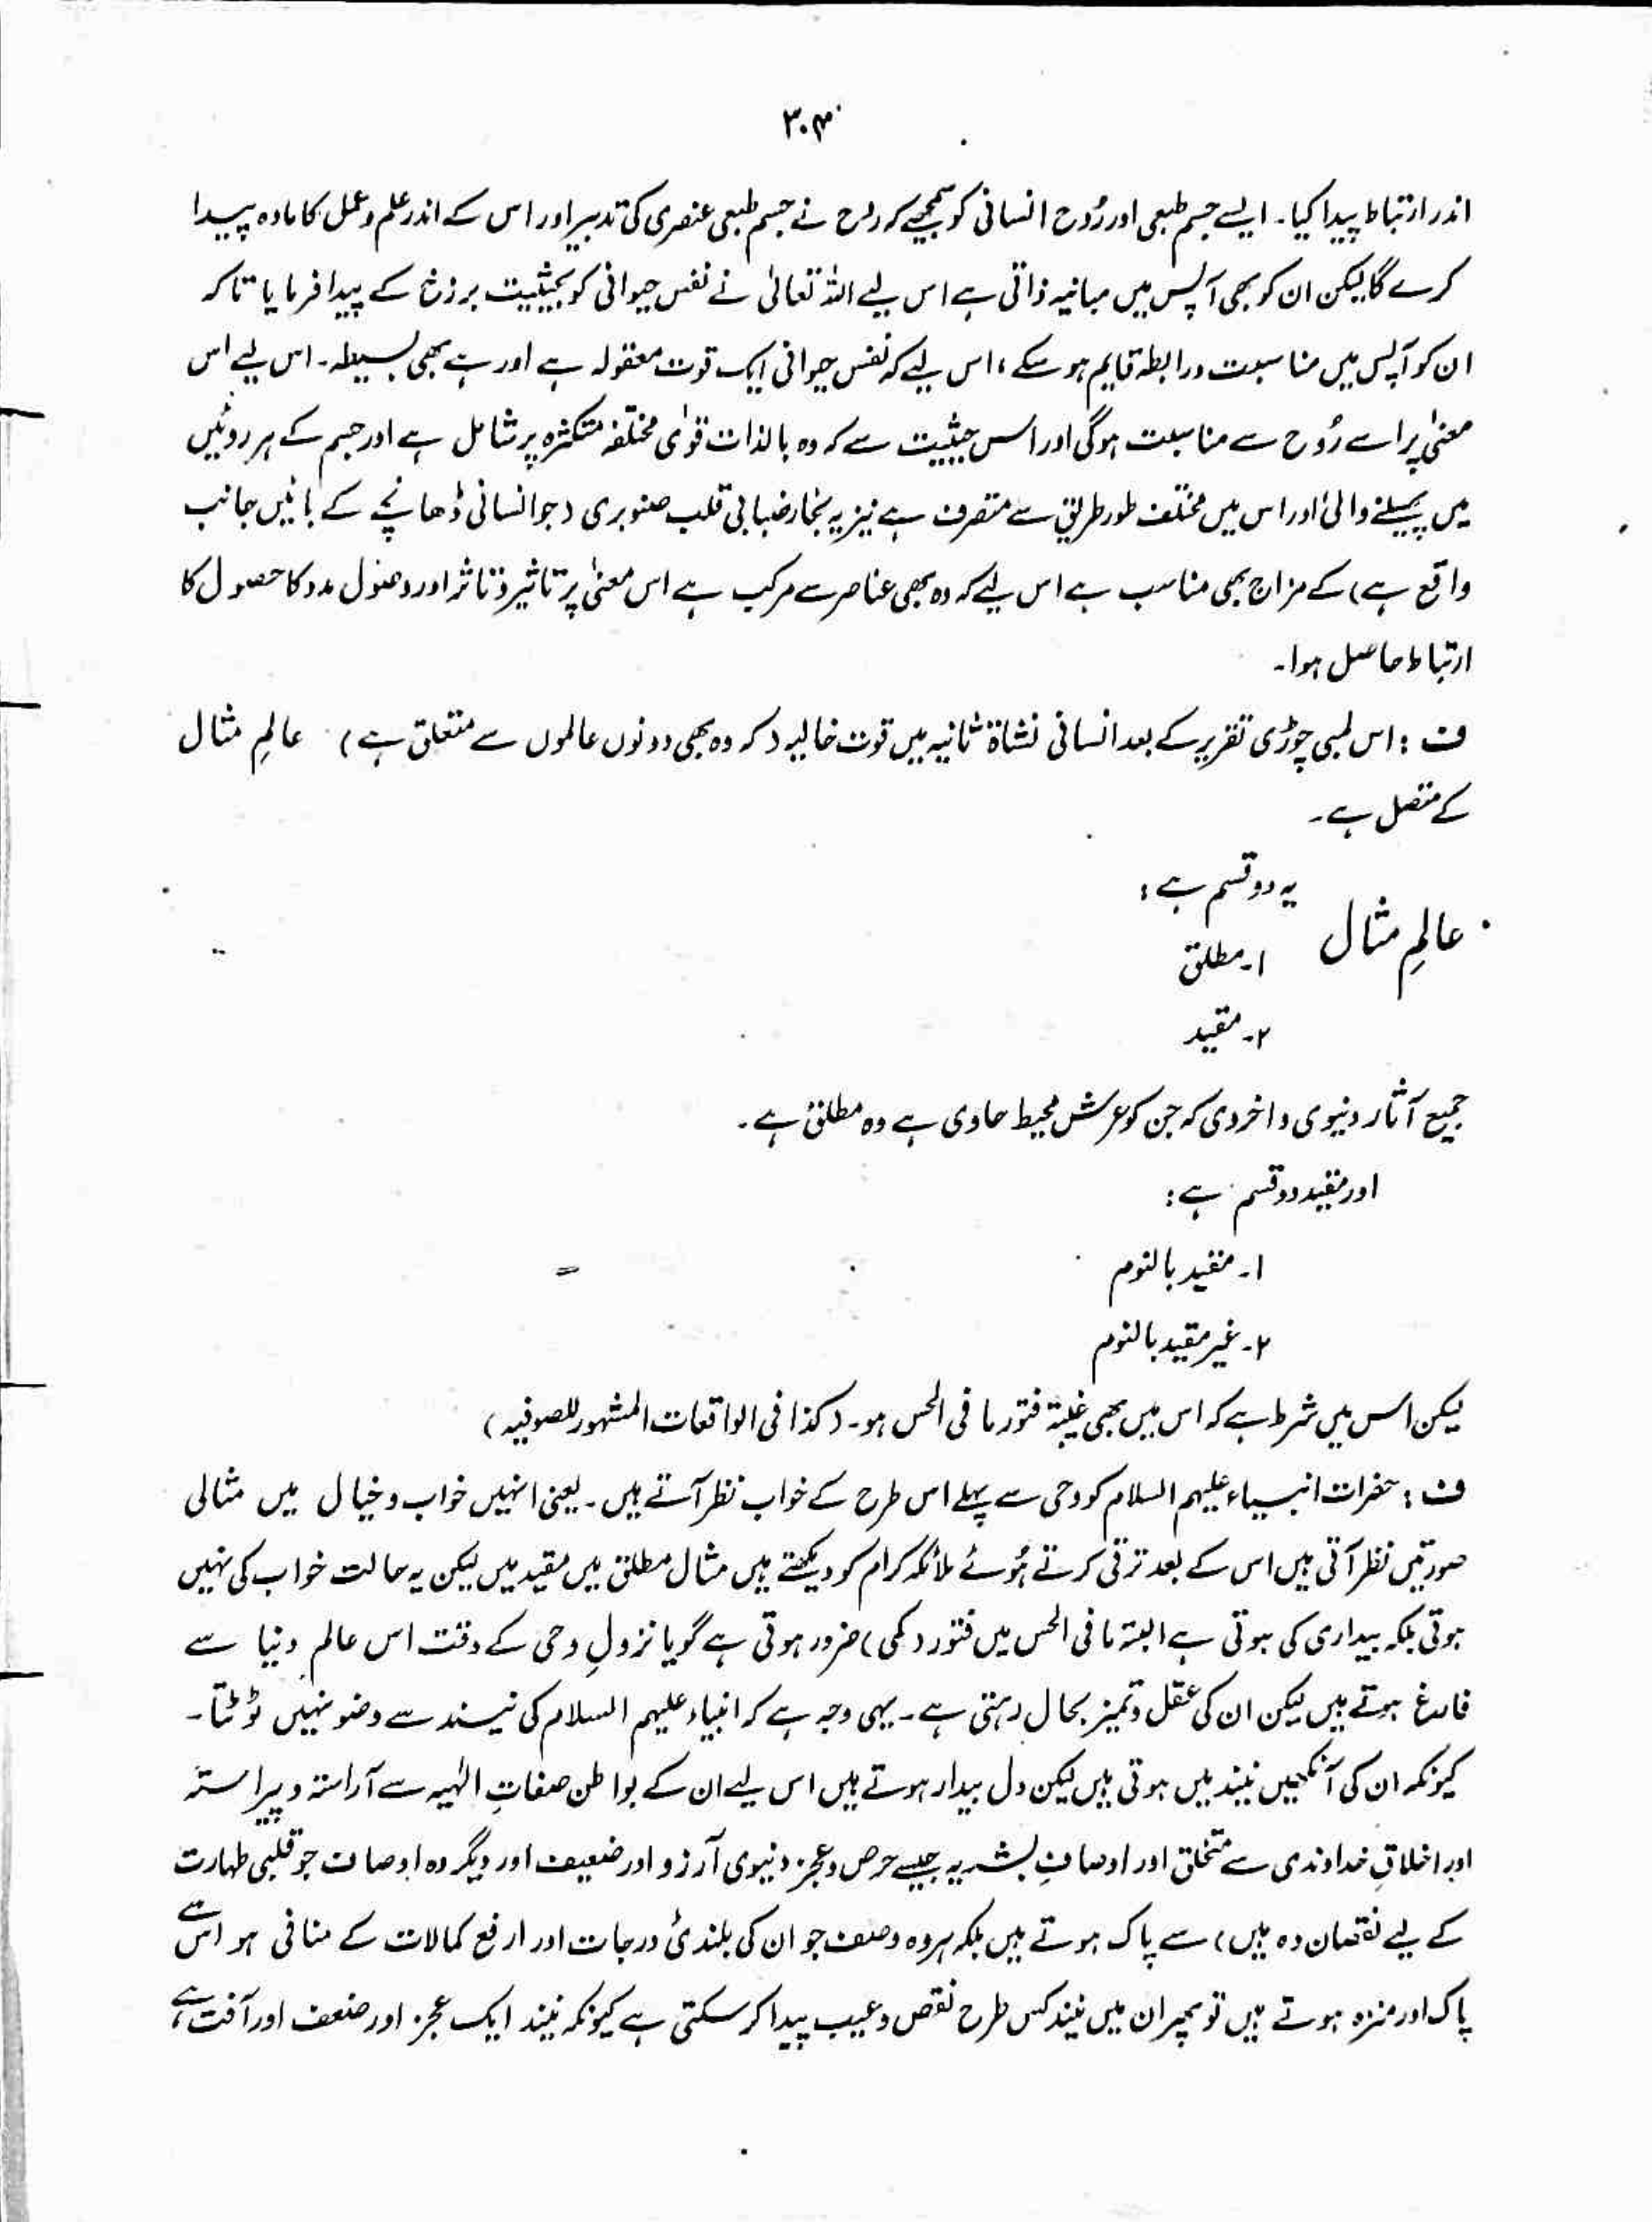 ۳۰۴
اندر ارتباط پیدا کیا۔ ایسے جسم طبعی اور رُوح انسانی کو سمجھیے کہ روح نے جسم طبعی عنصری کی تدبیر اور اس کے اندر علم و عمل کا مادہ پیدا
کرے گا لیکن ان کو بھی آپس میں مباینہ ذاتی ہے اس لیے اللہ تعالیٰ نے نفس حیوانی کو بحیثیت برزخ کے پیدا فرمایا تاکہ
ان کو آپس میں مناسبت و رابطہ قایم ہو سکے ، اس لیے کہ نفس حیوانی ایک قوت معقولہ ہے اور ہے بھی بسیطہ۔ اس لیے اس
معنیٰ پر اسے رُوح سے مناسبت ہوگی اور اس حیثیت سے کہ وہ بالذات قوٰی مختلفہ متکثرہ پر شامل ہے اور جسم کے ہر روئیں
میں پھیلنے والی اور اس میں مختلف طور طریق سے متصرف ہے نیز یہ بخار ضبابی قلب صنوبری (جو انسانی ڈھانچے کے بائیں جانب
واقع ہے) کے مزاج بھی مناسب ہے اس لیے کہ وہ بھی عناصر سے مرکب ہے اس معنیٰ پر تاثیر و تاثر اور وصول مدد کا حصول کا
ارتباط حاصل ہوا۔
ف : اس لمبی چوڑی تقریر کے بعد انسانی نشاۃ ثانیہ میں قوت خالیہ (کہ وہ بھی دونوں عالموں سے متعلق ہے) عالمِ مثال
کے متصل ہے۔
عالمِ مثال یہ دو قسم ہے :
۱۔ مطلق
۲۔ مقید
جمیع آثار دنیوی و اخروی کہ جن کو عرش محیط حاوی ہے وہ مطلق ہے۔
اور مقید دو قسم ہے :
۱۔ مقید بالنوم
۲۔ غیر مقید بالنوم
لیکن اس میں شرط ہے کہ اس میں بھی غیبۃ فتور ما فی الحس ہو۔ (کذا فی الواقعات المشہور للصوفیہ)
ف : حضرات انبیاء علیہم السلام کو وحی سے پہلے اس طرح کے خواب نظر آتے ہیں۔ یعنی انہیں خواب و خیال میں مثالی
صورتیں نظر آتی ہیں اس کے بعد ترقی کرتے ہُوئے ملائکہ کرام کو دیکھتے ہیں مثال مطلق میں مقید میں لیکن یہ حالت خواب کی نہیں
ہوتی بلکہ بیداری کی ہوتی ہے البتہ ما فی الحس میں فتور (کمی) ضرور ہوتی ہے گویا نزولِ وحی کے وقت اس عالم دنیا سے
فارغ ہوتے ہیں لیکن ان کی عقل و تمیز بحال رہتی ہے۔ یہی وجہ ہے کہ انبیاء علیہم السلام کی نیند سے وضو نہیں ٹوٹتا۔
کیونکہ ان کی آنکھیں نیند میں ہوتی ہیں لیکن دل بیدار ہوتے ہیں اس لیے ان کے بواطن صفاتِ الٰہیہ سے آراستہ و پیراستہ
اور اخلاقِ خداوندی سے متخلق اور اوصافِ بشریہ جیسے حرص و عجز دنیوی آرزو اور ضعیف اور دیگر وہ اوصاف جو قلبی طہارت
کے لیے نقصان دہ ہیں) سے پاک ہوتے ہیں بلکہ ہر وہ وصف جو ان کی بلندیٔ درجات اور ارفع کمالات کے منافی ہو اس سے
پاک اور منزہ ہوتے ہیں تو پھر ان میں نیند کس طرح نقص و عیب پیدا کر سکتی ہے کیونکہ نیند ایک عجز اور ضعف اور آفت ہے ،